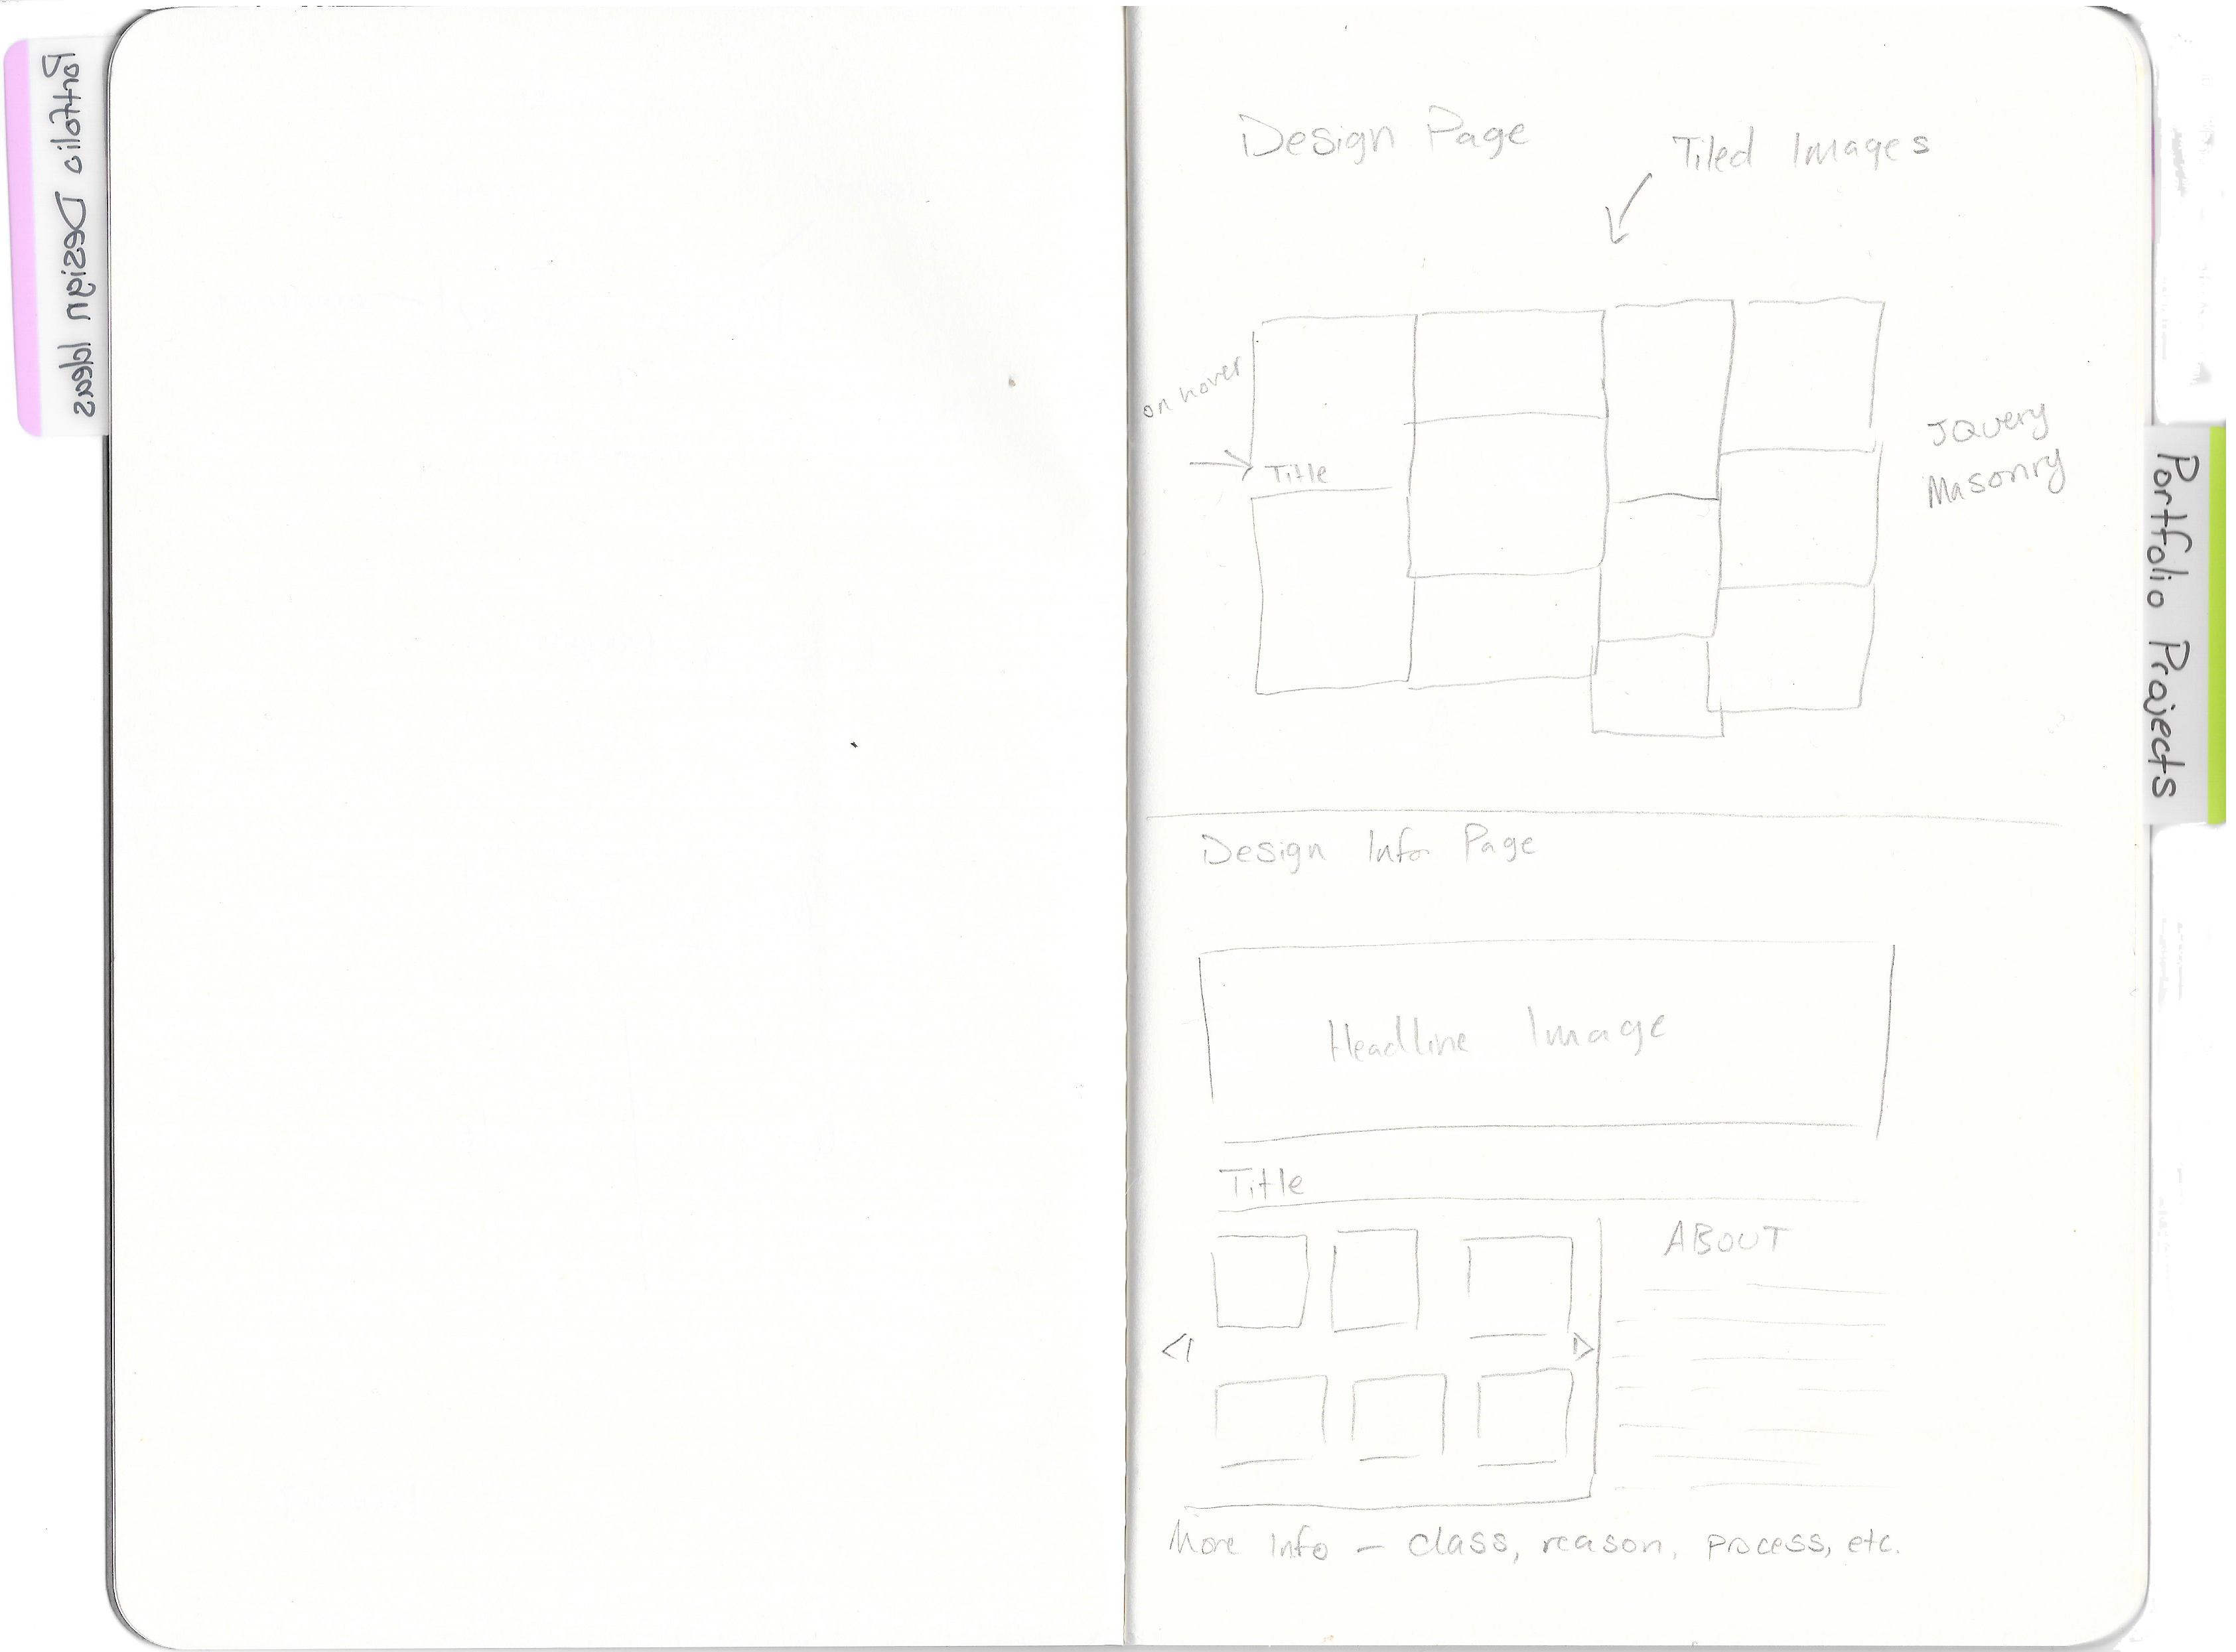 Portfolio Design Ideas
Design Page
Tiled Images
on hover
Title
JQuery
Masonry
Portfolio Projects
Design Info Page
Headline Image
Title
ABOUT
More Info – class, reason, process, etc.